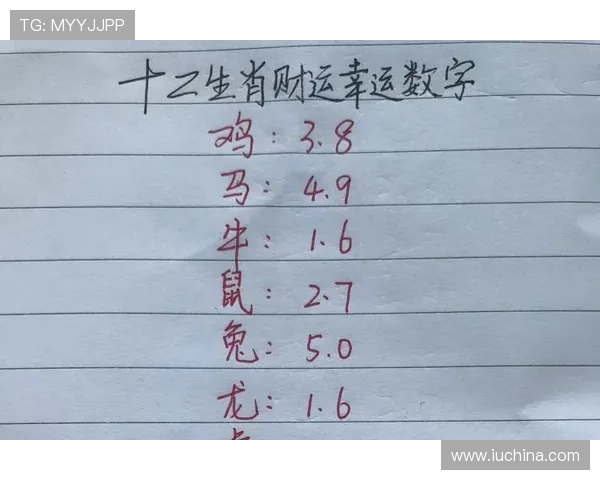 TG: MYYJJPP
十二生肖财运幸运数字
鸡: 3.8
马: 4.9
牛: 1.6
鼠: 2.7
兔: 5.0
龙: 1.6
www.iuchina.com